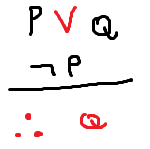 P V Q
¬ P
∴ Q